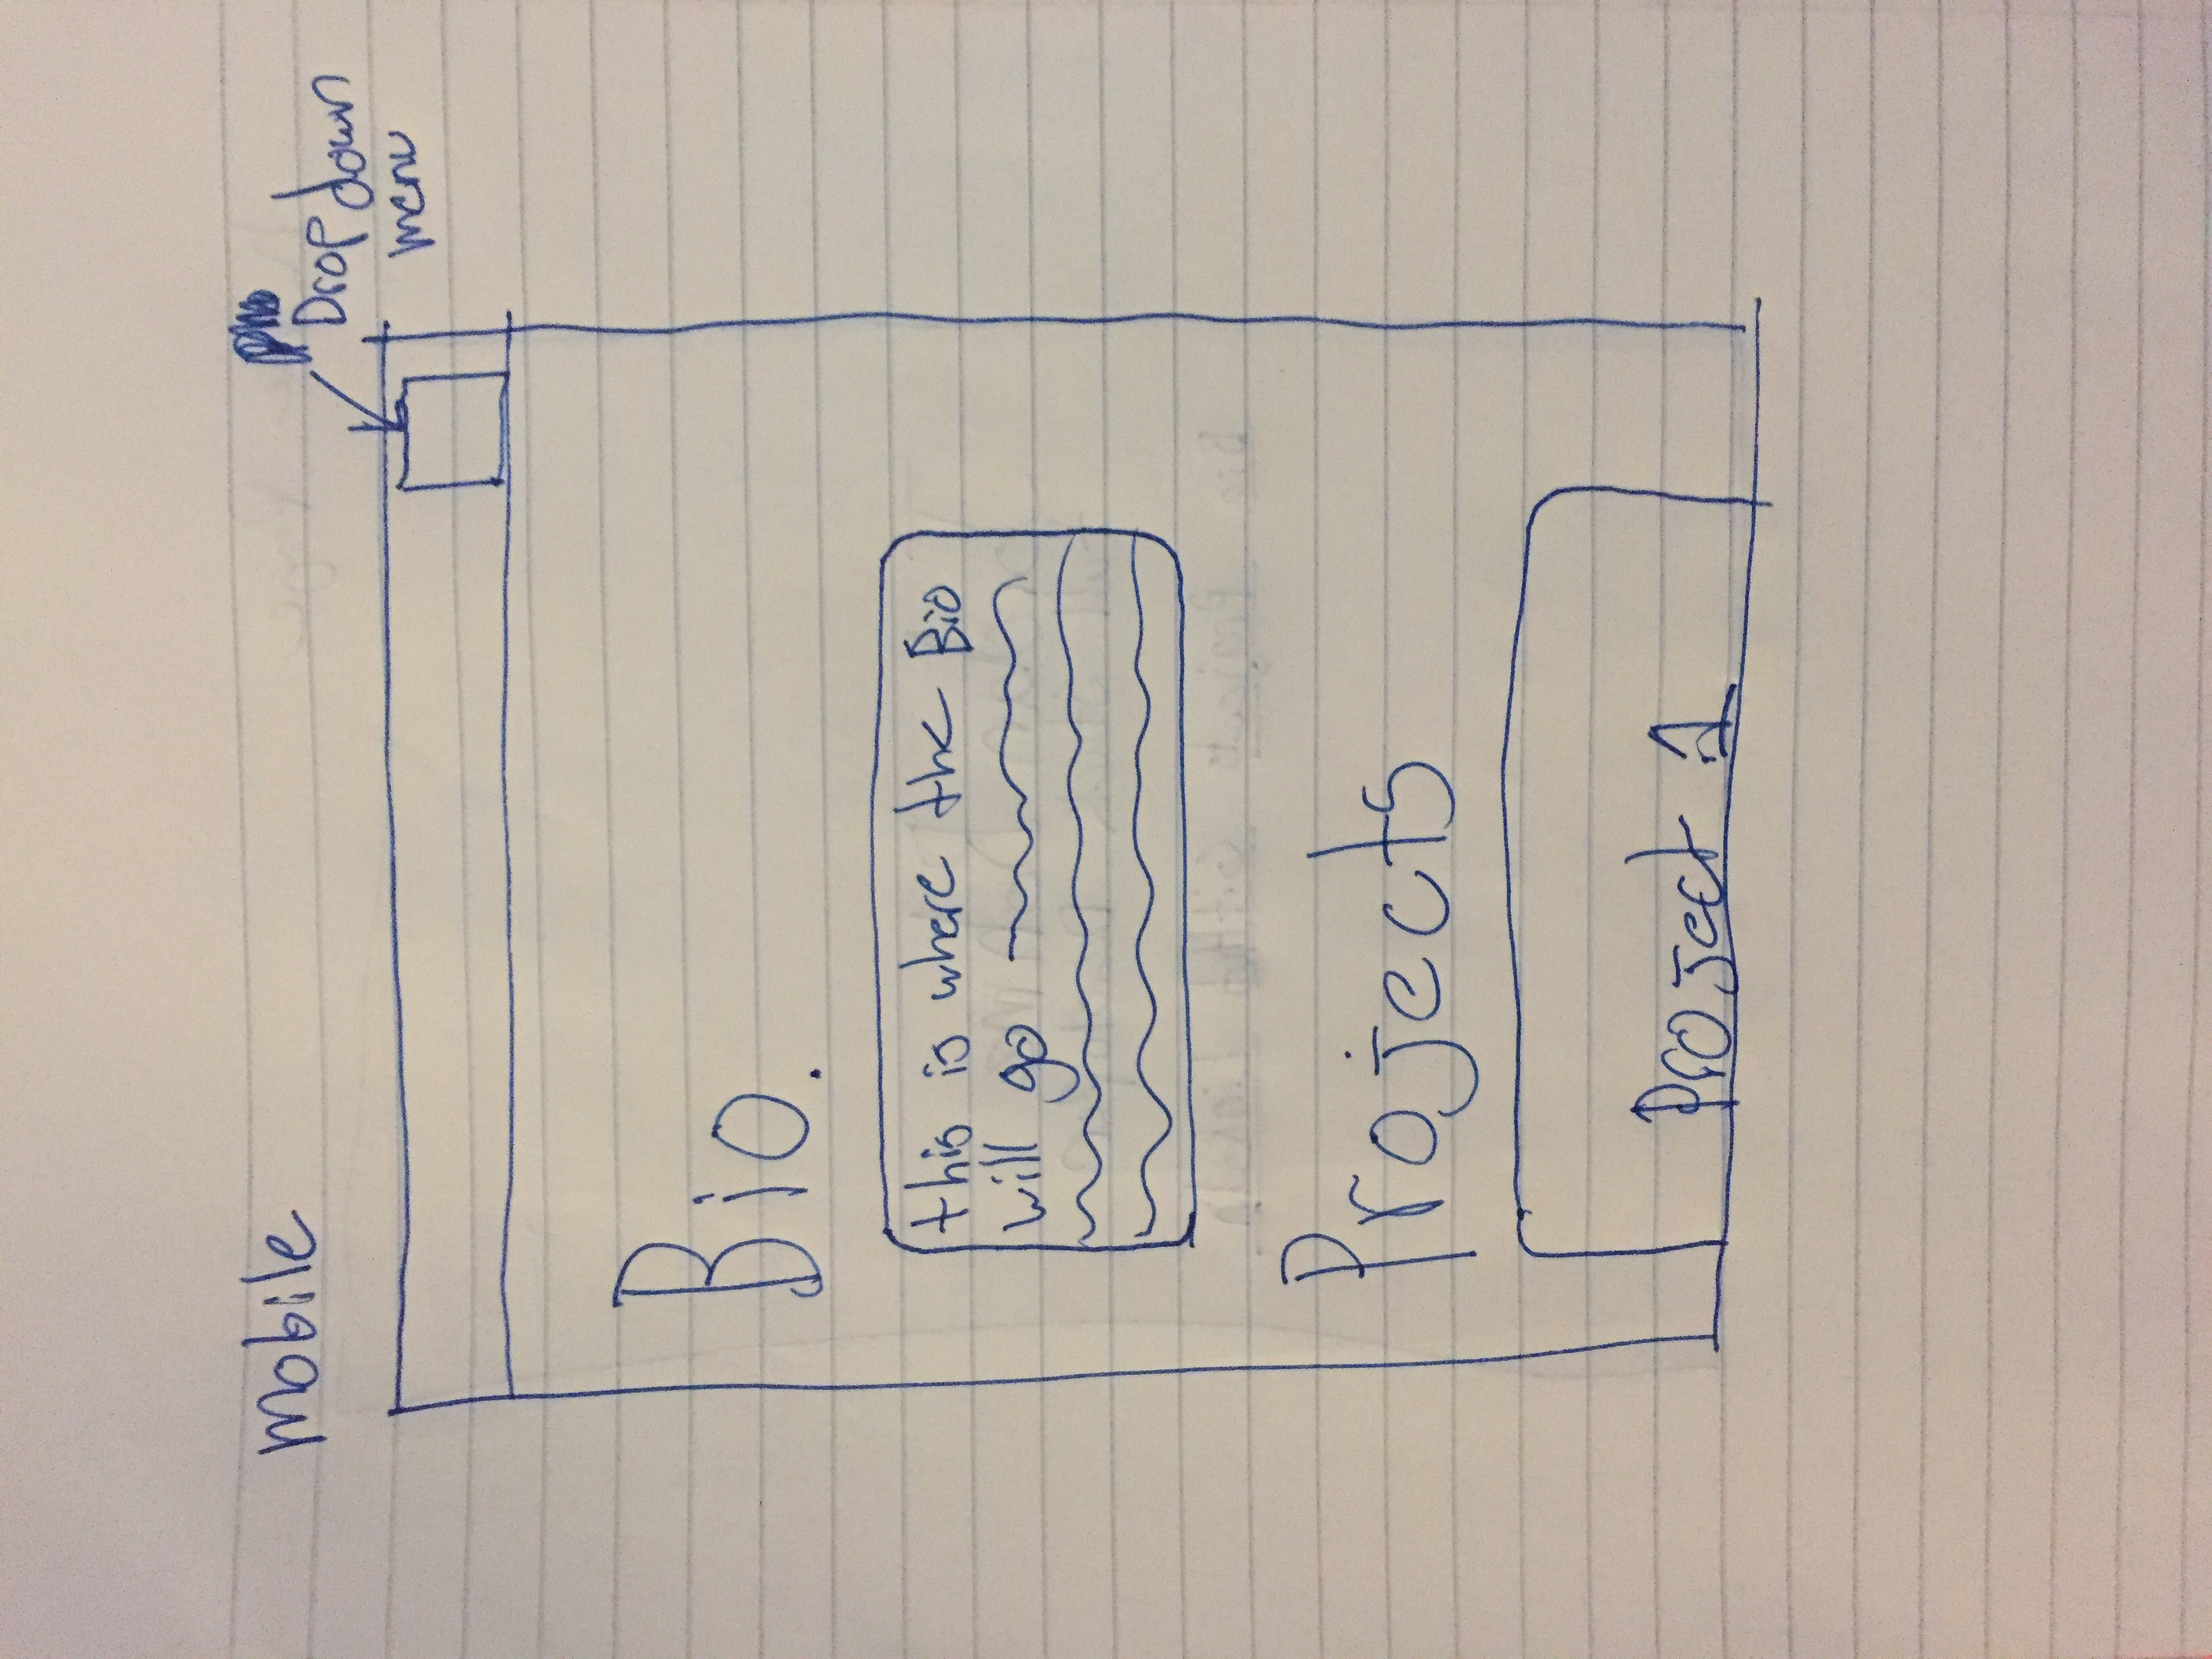 mobile
Drop down
menu
Bio.
this is where the Bio
will go
Projects
Project 1